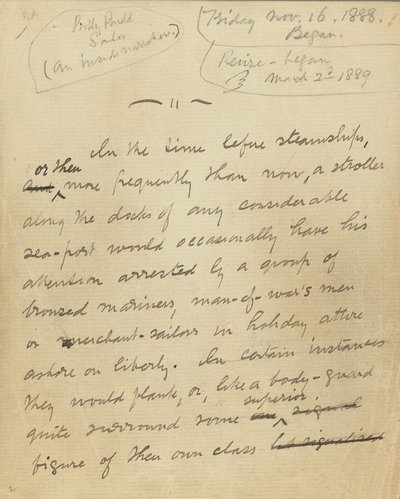 Billy Budd
Sailor
(An inside narrative.)
Friday Nov. 16. 1888.
Began.
Revise - began
March 2d 1889
11
In the time before steamships,
or then
and more frequently than now, a stroller
along the docks of any considerable
sea-port would occasionally have his
attention arrested by a group of
bronzed mariners, man-of-war's men
or merchant-sailors in holiday attire
ashore on liberty. In certain instances
they would flank, or, like a body-guard
superior
quite surround some signal
figure of their own class but signalized
2